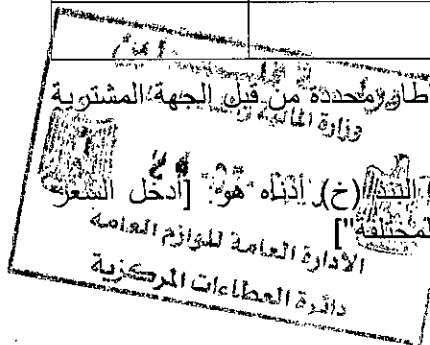 أطار ومحددة من قبل الجهة المشترية
وزارة المالية
البند (خ) أدناه هو: [أدخل السعر
المختلفة"]
الادارة العامة للوازم العامة
دائرة العطاءات المركزية